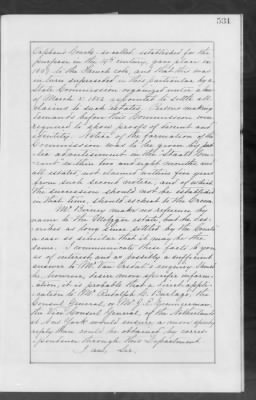 531
Orphans Courts, so called, established for the
purpose in the 15th century, gave place in
1809 to the French code, and that this was
in turn superseded in this particular by a
State Commission organized under a law
of March 5, 1852 appointed to settle all
claims to such estates. Persons making
demands before this Commission were
required to show proofs of descent and
identity. Notice of the formation of the
Commission was to be given by pub-
lic advertisement in the "Staats Cou-
rant" within two and eight months and
all estates, not claimed within five years
from such second notice, and of which
the succession should not be established
in that time, should escheat to the Crown.
Mr. Birney makes no reference by
name to the Metzgar estate, but he des-
cribes as long since settled by the Courts
a case so similar that it may be the
same. I communicate these facts to you
as of interest, and as possibly a sufficient
answer to Mr. Van Orsdal's enquiry. Should
he, however, desire more specific inform-
ation, it is probable that a direct appli-
cation to Mr. Rudolph C. Burlage, the
Consul General, or Mr. J. R. Planten,
the Vice Consul General, of the Netherlands
at New York would ensure a more speedy
reply than could be obtained by corres-
pondence through this Department.
I am, Sir,